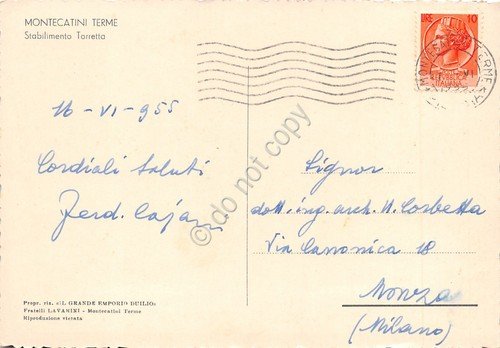 MONTECATINI TERME
Stabilimento Torretta
LIRE 10
16-VI-955
Cordiali Saluti
Ferd.
Signor
dott. ing. arch. U. Corbetta
Via Canonica 18
Monza
(Milano)
Propr. ris. «IL GRANDE EMPORIO DUILIO»
Fratelli LAVARINI - Montecatini Terme
Riproduzione vietata
do not copy